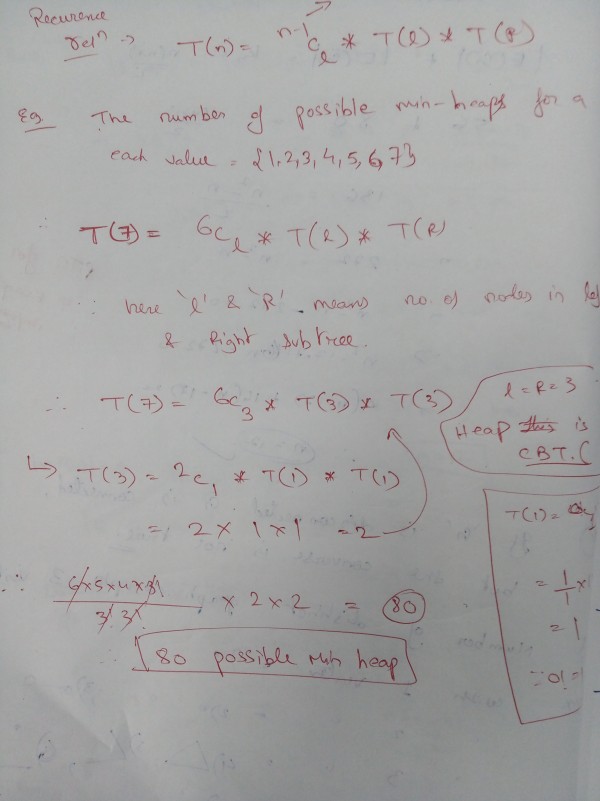 Recurence
relⁿ → T(n) = ⁿ⁻¹C_l * T(l) * T(R)
Eg The number of possible min-heaps for a
each value = {1,2,3,4,5,6,7}
T(7) = 6C_l * T(l) * T(R)
∴ here 'l' & 'R' means no. of nodes in lef
& Right subtree.
∴ T(7) = 6C₃ * T(3) * T(3)
l = R = 3
Heap this is
CBT. (
↳ T(3) = ²C₁ * T(1) * T(1)
= 2 × 1 × 1 = 2
T(1) =
= 1/1 ×
= 1
∴ 6×5×4×3! / 3! 3! × 2 × 2 = 80
80 possible min heap